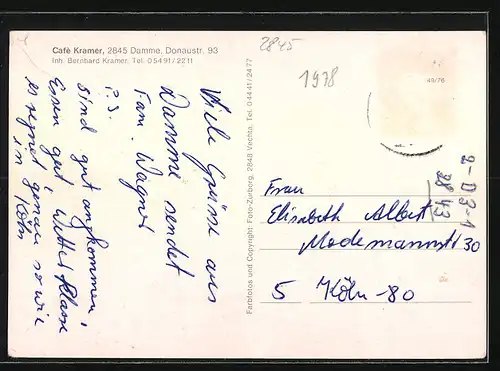 Café Kramer, 2845 Damme, Donaustr. 93
Inh. Bernhard Kramer, Tel. 05491/2211
2845
1978
49/76
Viele Grüsse aus
Damme sendet
Fam. Wagner
P.S.
Sind gut angkommen,
Essen gut, Wetter Klasse
es regnet genau so wie
in Köln
Farbfotos und Copyright: Foto-Zurborg, 2848 Vechta, Tel. 04441/2477
2-D3-1
2843
Frau
Elisabeth Albert
Modemannstr 30
5 Köln-80